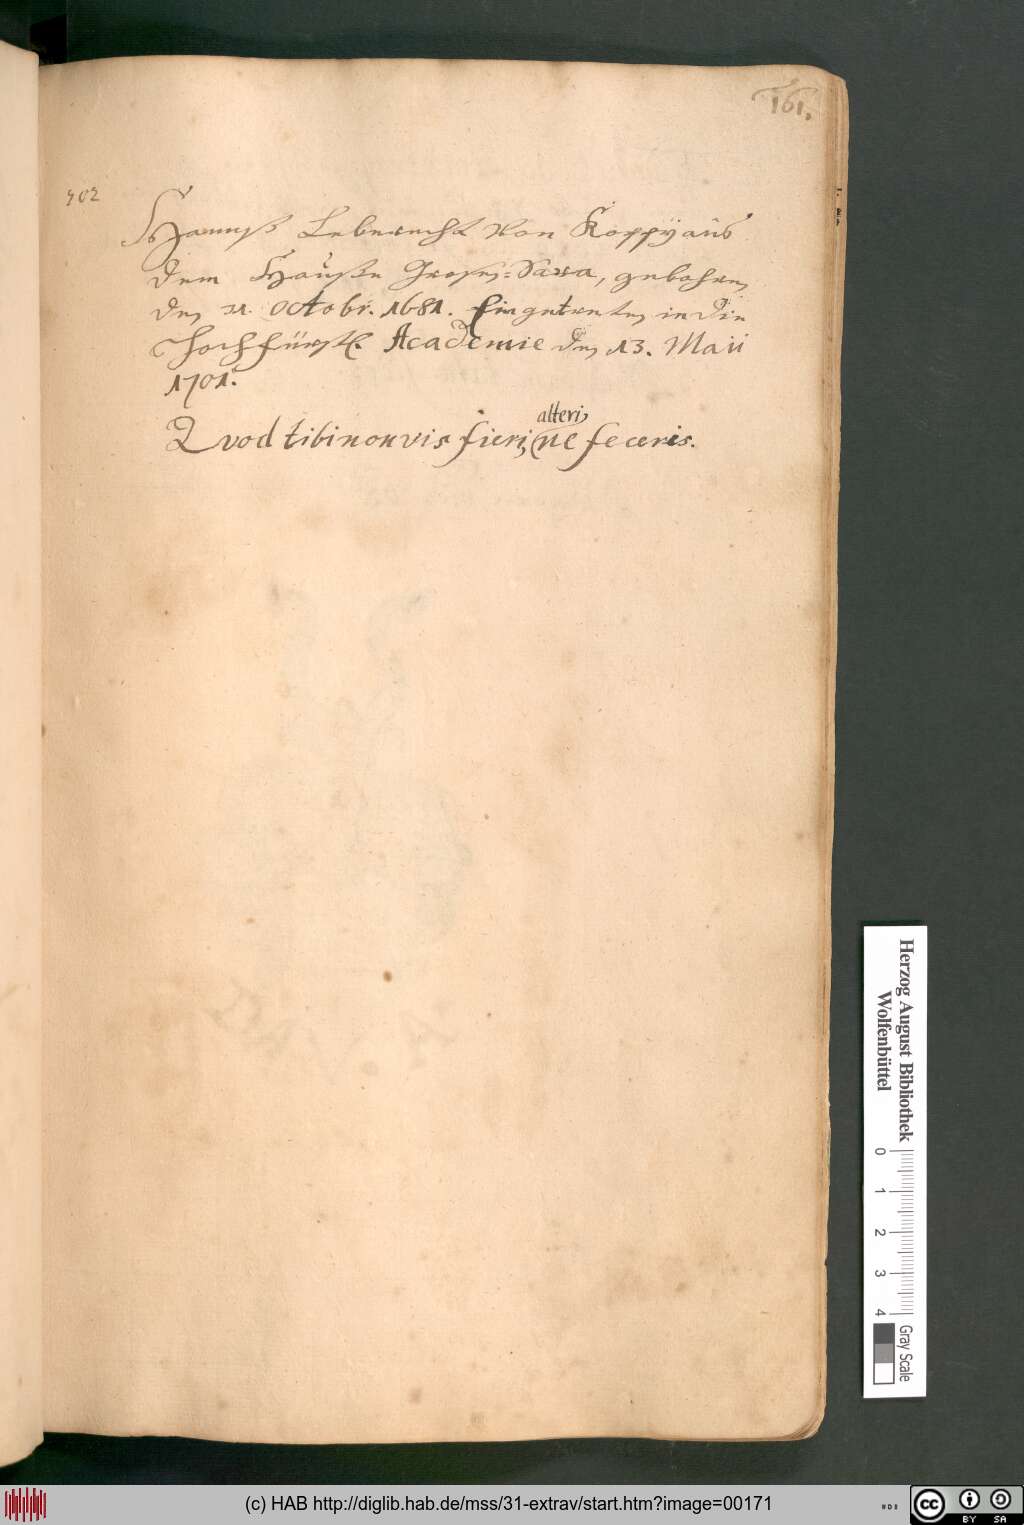 161.
702
Hannß Leberecht Von Koppÿ auß
dem Hauße Groß=Sara, gebohren
den 21. Octobr. 1681. Eingetreten in die
Hochfürstl. Academie den 13. Maii
1701.
alteri,
Qvod tibi non vis fieri, ne feceris.
Herzog August Bibliothek
Wolfenbüttel
0 1 2 3 4
Gray Scale
(c) HAB http://diglib.hab.de/mss/31-extrav/start.htm?image=00171
cc BY SA